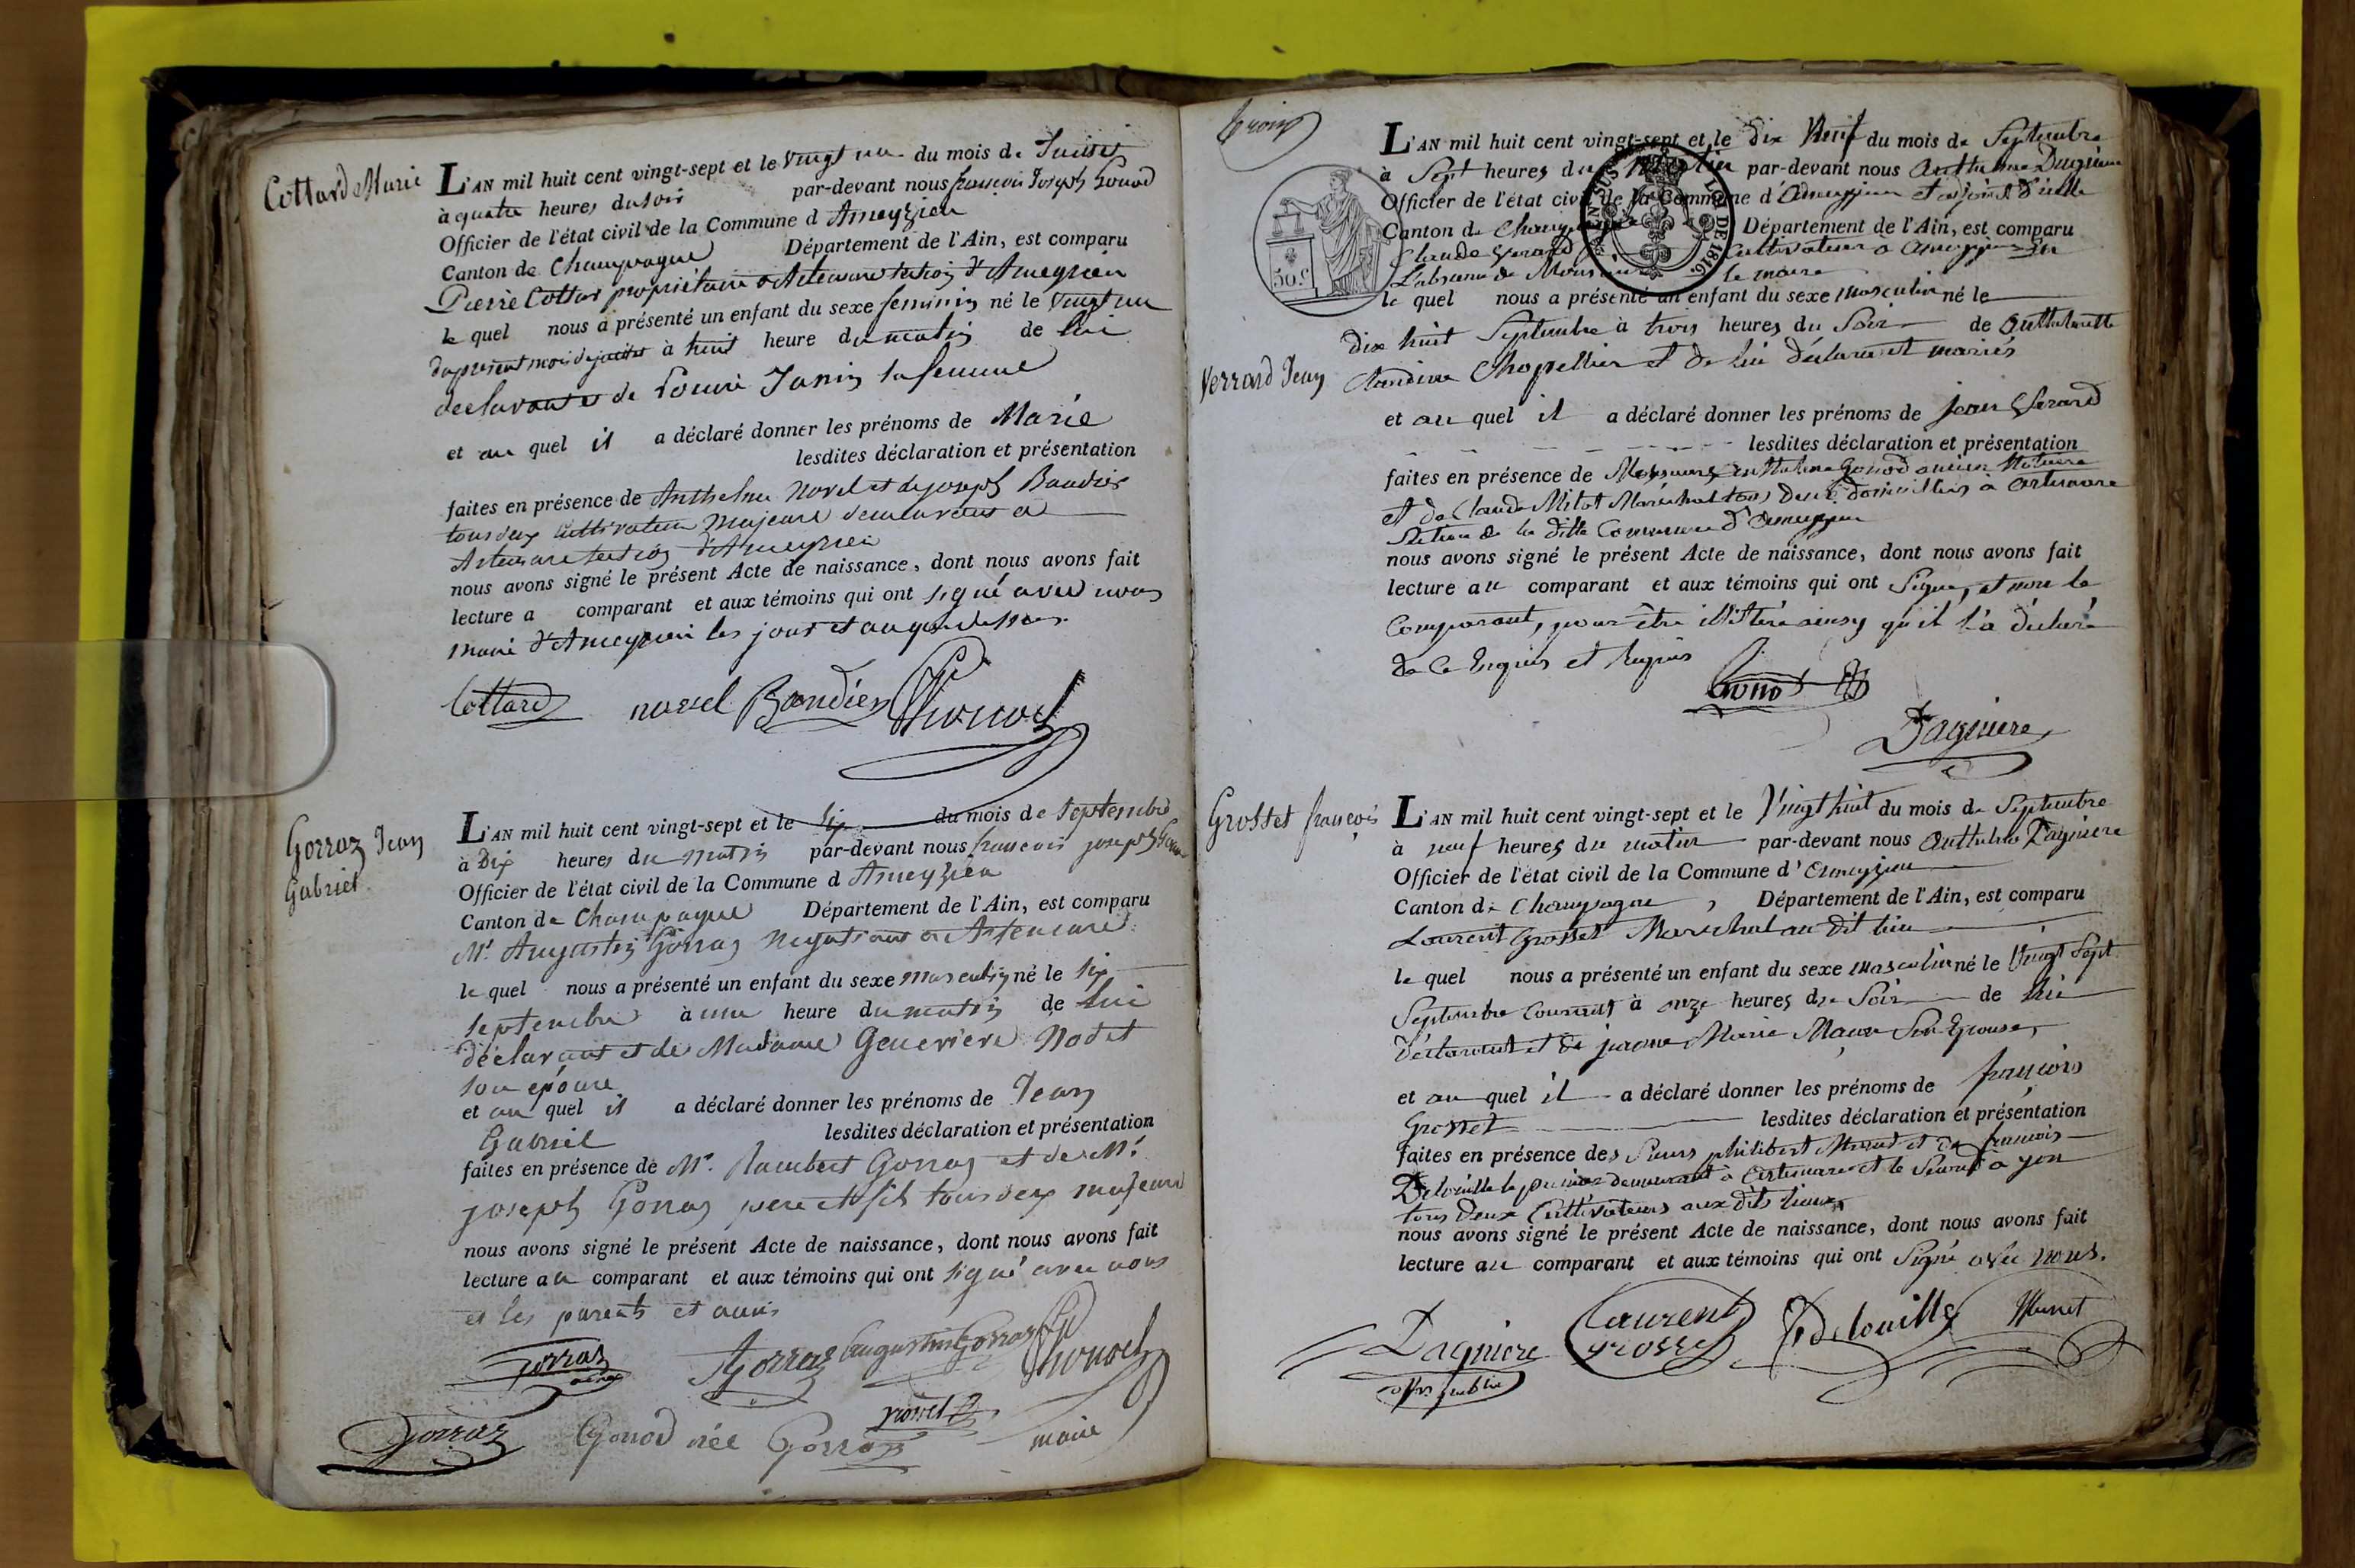 Cottard Marie
L'AN mil huit cent vingt-sept et le vingt un du mois de Juillet
à quatre heures du soir par-devant nous françois Joseph Gonod
Officier de l'état civil de la Commune d Ameyzieu
Canton de Champagne Département de l'Ain, est comparu
Pierre Cottard propriétaire a Artemare section d'Ameyzieu
le quel nous a présenté un enfant du sexe feminin né le vingt un
du présent mois de juillet à huit heure du matin de lui
declarant et de Louise Janin sa femme
et au quel il a déclaré donner les prénoms de Marie
lesdites déclaration et présentation
faites en présence de Anthelme Novel et de joseph Baudier
tous deux cultivateur majeurs demeurant a
Artemare section d'Ameyzieu
nous avons signé le présent Acte de naissance, dont nous avons fait
lecture a comparant et aux témoins qui ont signé avec nous
maire d'Ameyzieu les jour et an que dessus.
Cottard novel Baudier Gonod
Gorraz Jean
Gabriel
L'AN mil huit cent vingt-sept et le six du mois de septembre
à Dix heures du matin par-devant nous francois joseph Gonod
Officier de l'état civil de la Commune d Ameyzieu
Canton de Champagne Département de l'Ain, est comparu
Mr. Augustin Gorraz negotiant a Artemare
le quel nous a présenté un enfant du sexe masculin né le six
septembre à une heure du matin de lui
déclarant et de Madame Genevieve Nodet
son epouse
et au quel il a déclaré donner les prénoms de Jean
Gabriel lesdites déclaration et présentation
faites en présence de Mr. Rambert Gorraz et de Mr.
joseph Gorraz pere et fils tous deux majeurs
nous avons signé le présent Acte de naissance, dont nous avons fait
lecture au comparant et aux témoins qui ont signé avec nous
et les parents et amis
gorraz Gorraz augustin Gorraz Gonod
Gorraz Gonod née Gorraz maire
50c.
EN SUS LOI DE 1816.
L'AN mil huit cent vingt-sept et le dix Neuf du mois de Septembre
à Sept heures du matin par-devant nous Anthelme Dagniere
Officier de l'état civil de la Commune d'Ameyzieu et adjoint d'icelle
Canton de Champagne Département de l'Ain, est comparu
Claude Gerard Cultivateur a Ameyzieu En
L'absence de Monsieur le maire
le quel nous a présenté un enfant du sexe masculin né le
dix huit Septembre à trois heures du Soir de Anthelmette
Verrard Jean
Claudine Chapellier et de lui déclarant mariés
et au quel il a déclaré donner les prénoms de jean Gerard
lesdites déclaration et présentation
faites en présence de Messieurs Anthelme Gonod ancien Notaire
et de Claude Milot Maréchal tous deux domiciliés a Artemare
Section de la ditte Commune d'Ameyzieu
nous avons signé le présent Acte de naissance, dont nous avons fait
lecture au comparant et aux témoins qui ont Signé, et non le
Comparant, pour être illitéré ainsy qu'il l'a déclaré
de ce Enquis et Requis
Gonod
Dagniere
Grosset françois
L'AN mil huit cent vingt-sept et le Vingt huit du mois de Septembre
à neuf heures du matin par-devant nous Anthelme Dagniere
Officier de l'état civil de la Commune d'Ameyzieu
Canton de Champagne, Département de l'Ain, est comparu
Laurent Grosset Marechal au dit lieu
le quel nous a présenté un enfant du sexe masculin né le Vingt Sept
Septembre Courant à onze heures du Soir de lui
déclarant et de Marie Son Epouse,
et au quel il a déclaré donner les prénoms de françois
Grosset lesdites déclaration et présentation
faites en présence des Sieurs philibert et de francois
Delouille le premier demeurant à Artemare et le Second à yon
tous deux Cultivateurs aux dits lieux,
nous avons signé le présent Acte de naissance, dont nous avons fait
lecture au comparant et aux témoins qui ont Signé avec nous.
Dagniere Laurent Grosset Delouille
offr. public